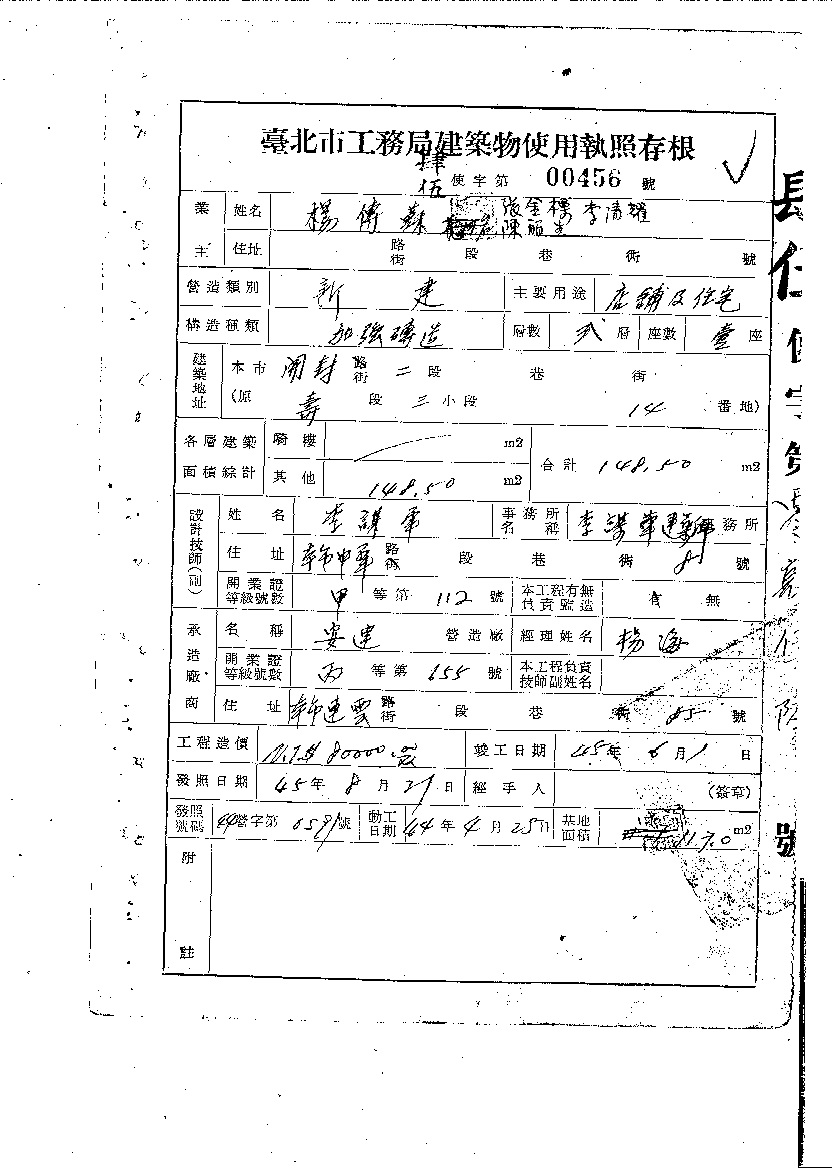 臺北市工務局建築物使用執照存根
肆伍使字第 00456 號
業主 姓名 楊傳蘇 張金樑 李清耀
陳
住址 路街 段 巷 衖 號
營造類別 新建 主要用途 店舖及住宅
構造種類 加強磚造 層數 弍層 座數 壹座
建築地址 本市 開封路街 二段 巷 街
(原 壽段 三小段 14 番地)
各層建築面積綜計 騎樓 m2 合計 148.50 m2
其他 148.50 m2
設計技師(副) 姓名 李謀華 事務所名稱 李謀華建築師事務所
住址 本市中華路街 段 巷 衖 號
開業證等級號數 甲等第 112 號 本工程有無負責監造 有 無
承造廠商 名稱 安建 營造廠 經理姓名 楊海
開業證等級號數 丙等第 655 號 本工程負責技師副姓名
住址 本市連雲路街 段 巷 衖 85 號
工程造價 N.T.$ 80000.00 竣工日期 45年 6月 1日
發照日期 45年 8月 21日 經手人 (簽章)
發照號碼 44營字第 0591號 動工日期 44年 4月 25日 基地面積 117.0 m2
附註
長 使字第 號